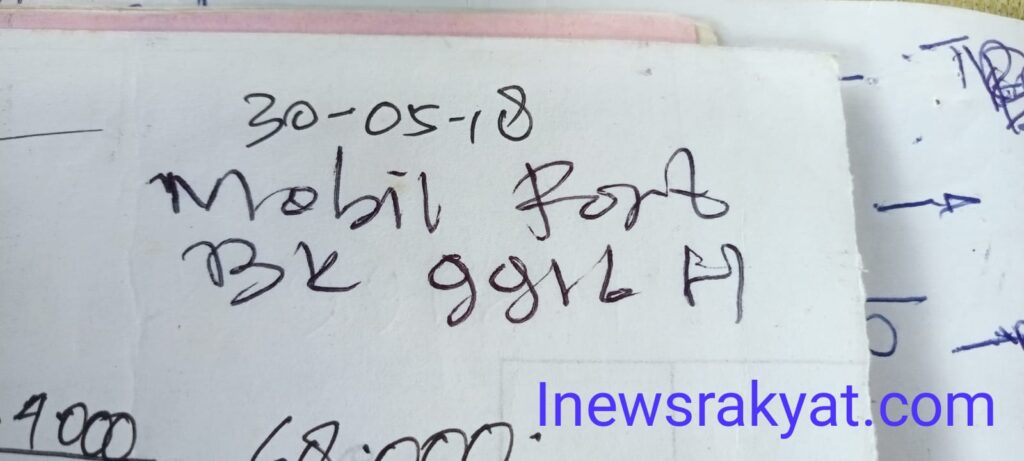 30-05-18
Mobil Fort
BK 9916 H
4000 68.000.
Inewsrakyat.com